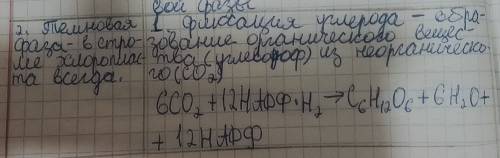 вой фазы
2. Темновая
фаза - в стро-
ме хлороплас-
та всегда.
1. Фиксация углерода - обра-
зование органического вещес-
тва (углевод оф) из неорганическо-
го (CO2)
6CO2 + 12НАДФ·H2 → C6H12O6 + 6H2O +
+ 12НАДФ